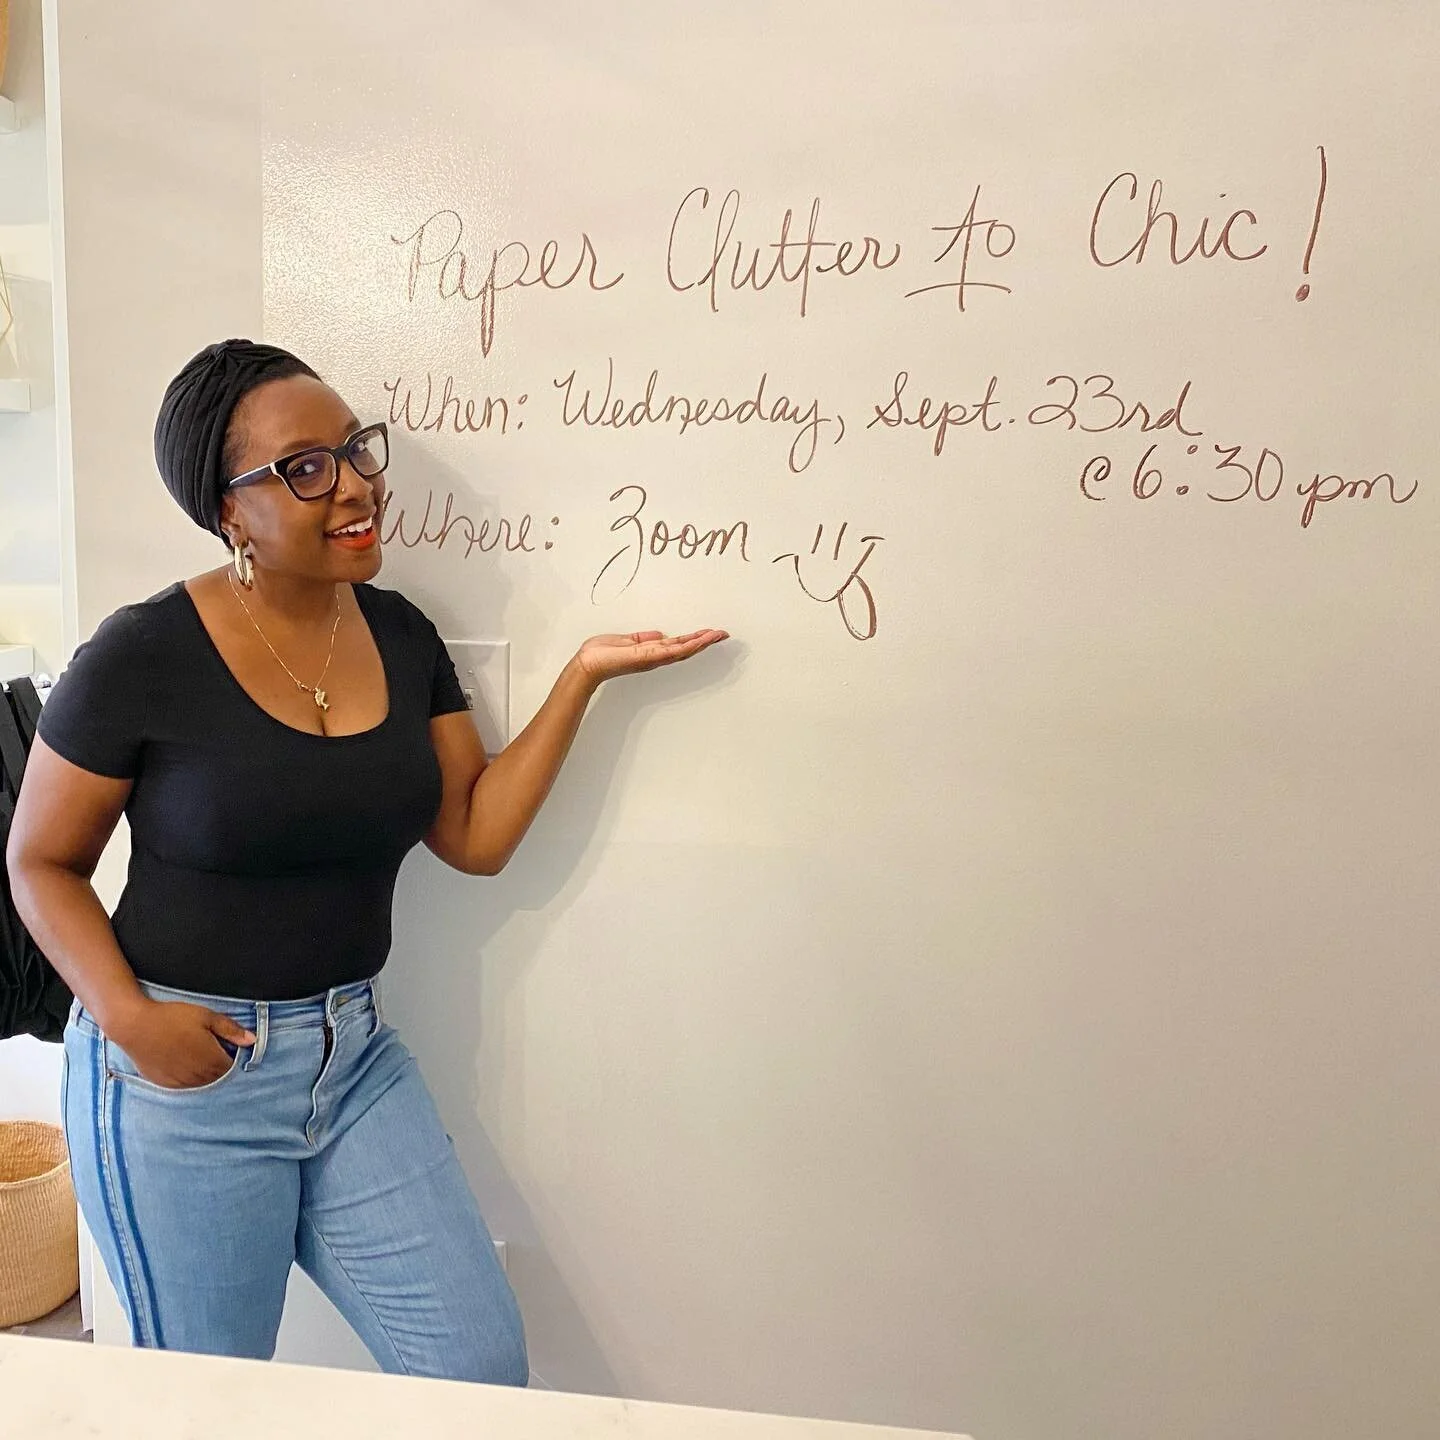 Paper Clutter to Chic!
When: Wednesday, Sept. 23rd
@ 6:30 pm
Where: Zoom